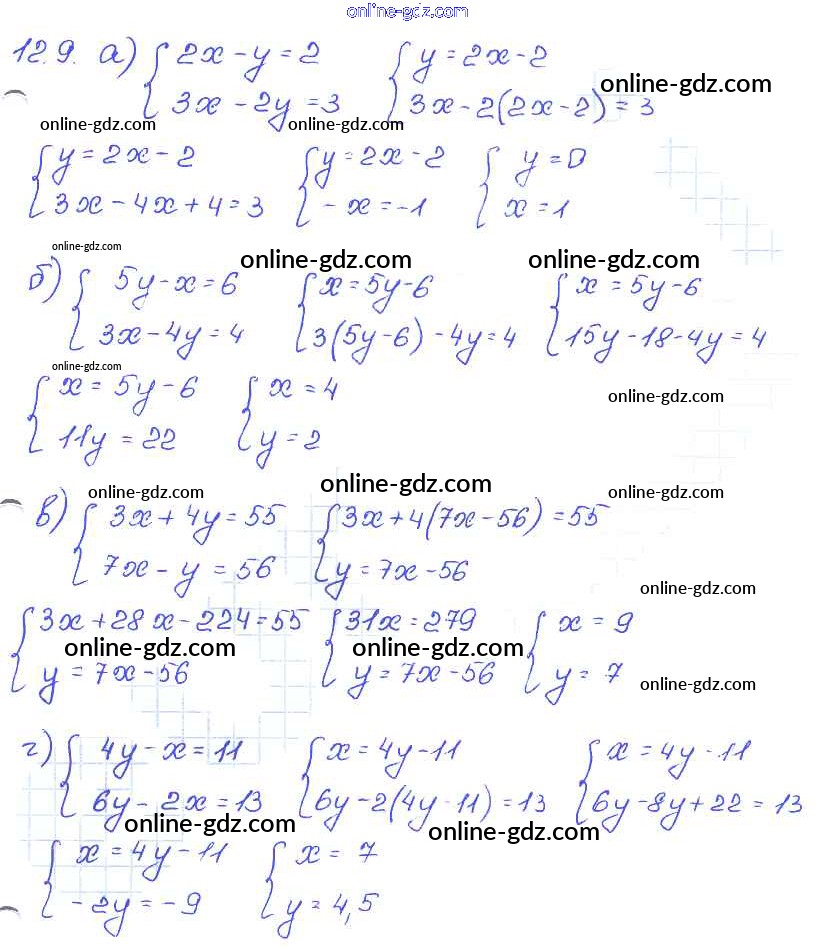 online-gdz.com
12.9. а) { 2x - y = 2 { y = 2x - 2
3x - 2y = 3 3x - 2(2x - 2) = 3
online-gdz.com
online-gdz.com online-gdz.com
{ y = 2x - 2 { y = 2x - 2 { y = 0
3x - 4x + 4 = 3 - x = -1 x = 1
online-gdz.com online-gdz.com online-gdz.com
б) { 5y - x = 6 { x = 5y - 6 { x = 5y - 6
3x - 4y = 4 3(5y - 6) - 4y = 4 15y - 18 - 4y = 4
online-gdz.com
{ x = 5y - 6 { x = 4
11y = 22 y = 2
online-gdz.com
online-gdz.com online-gdz.com online-gdz.com
в) { 3x + 4y = 55 { 3x + 4(7x - 56) = 55
7x - y = 56 y = 7x - 56
online-gdz.com
{ 3x + 28x - 224 = 55 { 31x = 279 { x = 9
online-gdz.com online-gdz.com
y = 7x - 56 y = 7x - 56 y = 7
online-gdz.com
г) { 4y - x = 11 { x = 4y - 11 { x = 4y - 11
6y - 2x = 13 6y - 2(4y - 11) = 13 6y - 8y + 22 = 13
online-gdz.com online-gdz.com
{ x = 4y - 11 { x = 7
- 2y = - 9 y = 4,5